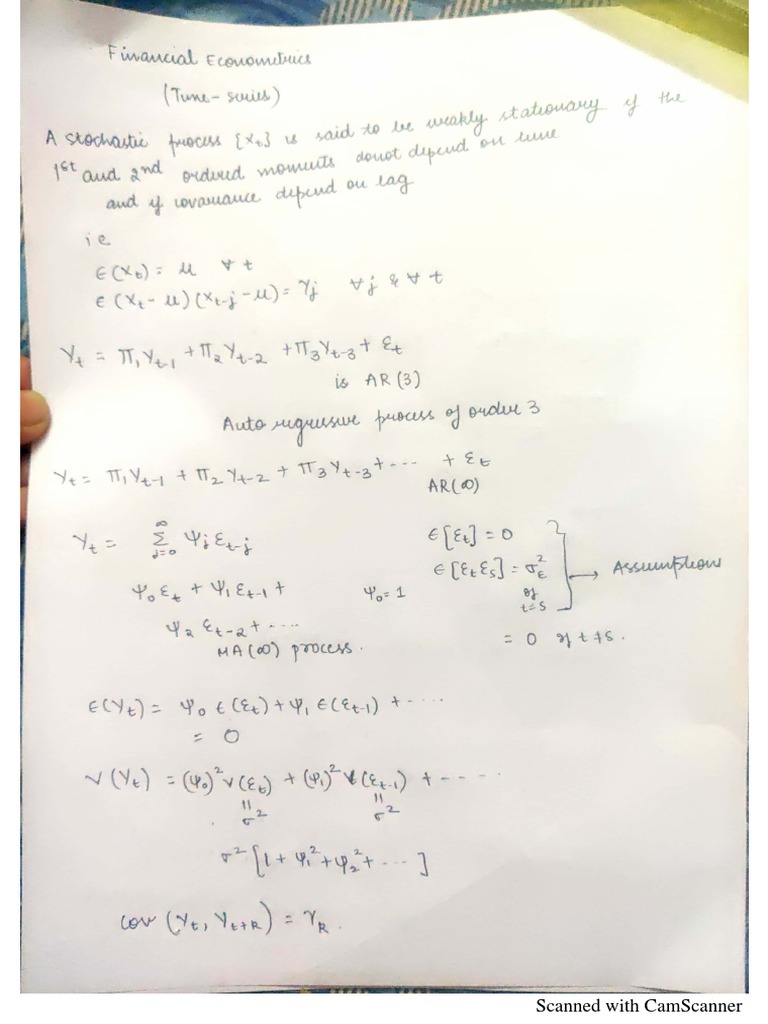 Financial Econometrics
(Time-series)
A stochastic process {Xt} is said to be weakly stationary if the
1st and 2nd ordered moments donot depend on time
and if covariance depend on lag
i.e
E(Xt) = μ ∀ t
E(Xt - μ)(Xt-j - μ) = γj ∀ j & ∀ t
Yt = Π1Yt-1 + Π2Yt-2 + Π3Yt-3 + Ɛt
is AR(3)
Auto regressive process of order 3
Yt = Π1Yt-1 + Π2Yt-2 + Π3Yt-3 + ---- + Ɛt
AR(∞)
Yt = ∞Σj=0 ΨjƐt-j
E[Ɛt] = 0
E[ƐtƐs] = σƐ² → Assumptions
if t=s
Ψ0Ɛt + Ψ1Ɛt-1 +
Ψ0 = 1
Ψ2Ɛt-2 + ....
= 0 if t≠s.
MA(∞) process.
E(Yt) = Ψ0 E(Ɛt) + Ψ1 E(Ɛt-1) + ....
= 0
V(Yt) = (Ψ0)² V(Ɛt) + (Ψ1)² V(Ɛt-1) + -----
|| ||
σ² σ²
σ² [1 + Ψ1² + Ψ2² + ...]
cov (Yt, Yt+R) = γR.
Scanned with CamScanner